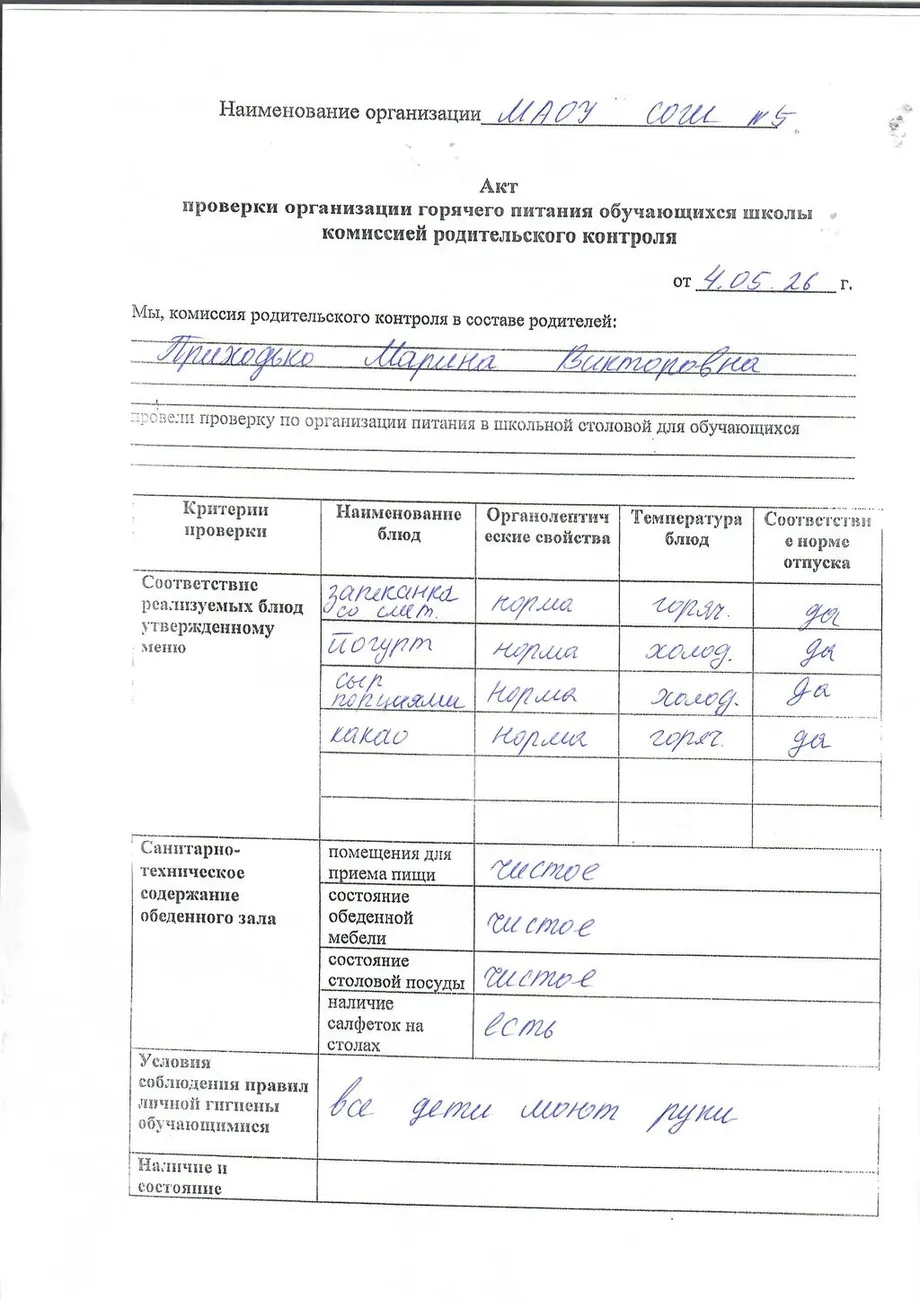 Наименование организации МАОУ СОШ №5
Акт
проверки организации горячего питания обучающихся школы
комиссией родительского контроля
от 4.05.26 г.
Мы, комиссия родительского контроля в составе родителей:
Приходько Марина Викторовна
провели проверку по организации питания в школьной столовой для обучающихся
Критерии проверки
Наименование блюд
Органолептические свойства
Температура блюд
Соответствие норме отпуска
Соответствие
реализуемых блюд
утвержденному
меню
запеканка со смет. норма горяч. да
йогурт норма холод. да
сыр порциями норма холод. да
какао норма горяч. да
Санитарно-
техническое
содержание
обеденного зала
помещения для
приема пищи
чистое
состояние
обеденной
мебели
чистое
состояние
столовой посуды
чистое
наличие
салфеток на
столах
есть
Условия
соблюдения правил
личной гигиены
обучающимися
все дети моют руки
Наличие и
состояние